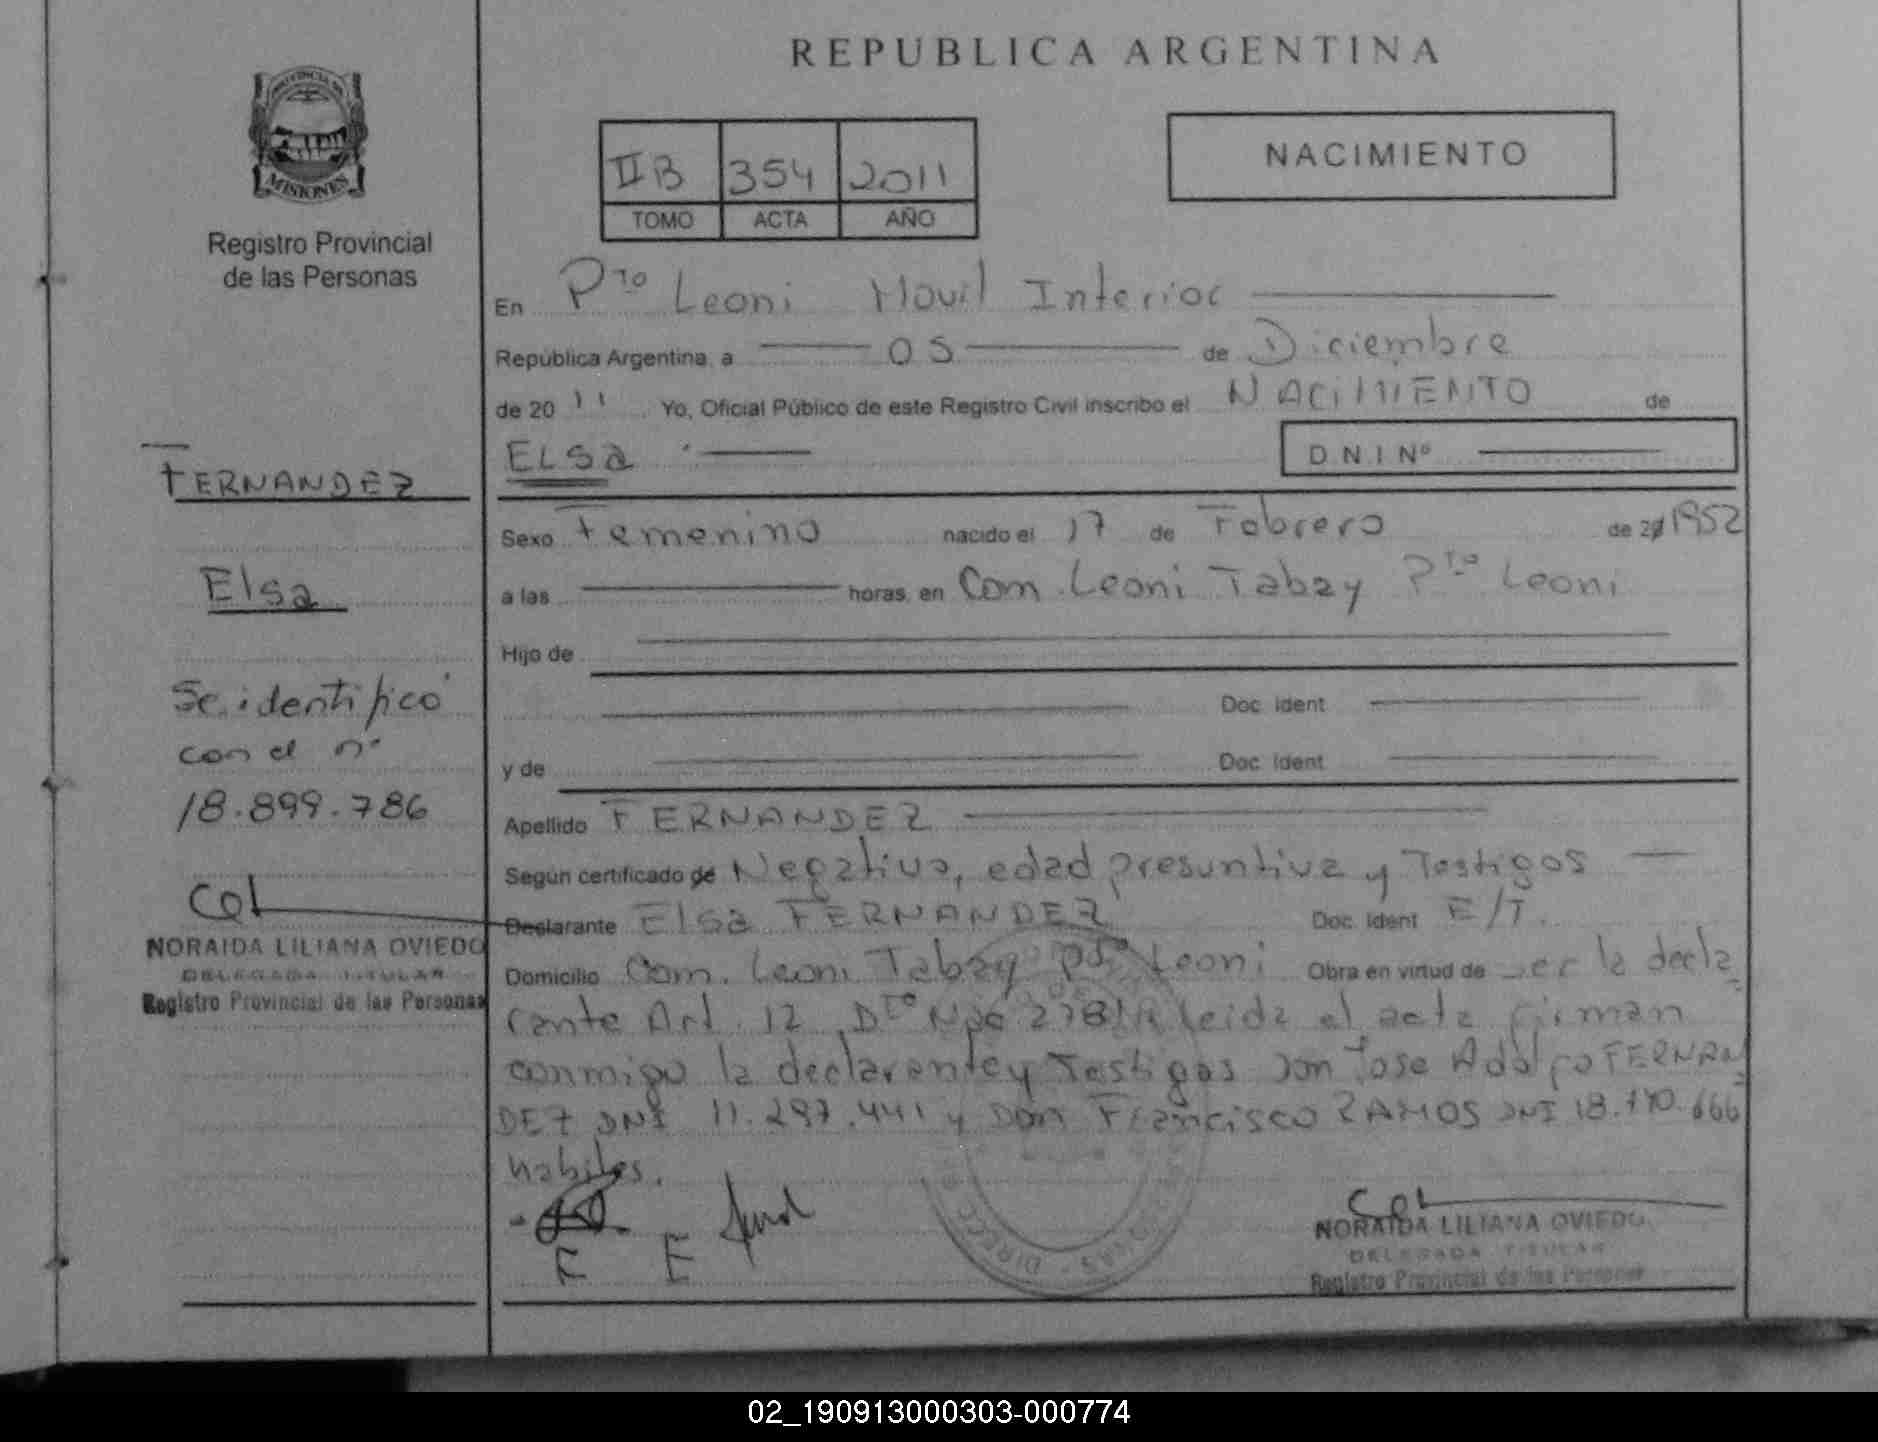 REPUBLICA ARGENTINA
PROVINCIA DE
MISIONES
Registro Provincial
de las Personas
IIB 354 2011
TOMO ACTA AÑO
NACIMIENTO
En Pto Leoni Movil Interior
República Argentina, a 05 de Diciembre
de 2011 Yo, Oficial Público de este Registro Civil inscribo el NACIMIENTO de
ELSa D.N.I Nº
FERNANDEZ
Elsa
Se identificó
con el nº
18.899.786
NORAIDA LILIANA OVIEDO
DELEGADA TITULAR
Registro Provincial de las Personas
Sexo Femenino nacido el 17 de Febrero de 1952
a las horas, en Com. Leoni Tabay Pto Leoni
Hijo de
Doc. Ident
y de Doc. Ident
Apellido FERNANDEZ
Según certificado de Negativo, edad presuntiva y Testigos
Declarante Elsa FERNANDEZ Doc. Ident E/T.
Domicilio Com. Leoni Tabay Pto Leoni Obra en virtud de ser la decla
rante Art. 12 Dto Nro leida el acta firman
conmigo la declarante y Testigos Don Jose Adolfo FERNAN
DEZ DNI 11.297.441 y Don Francisco RAMOS DNI
habiles.
F E
NORAIDA LILIANA OVIEDO
DELEGADA TITULAR
Registro Provincial de las Personas
02_190913000303-000774